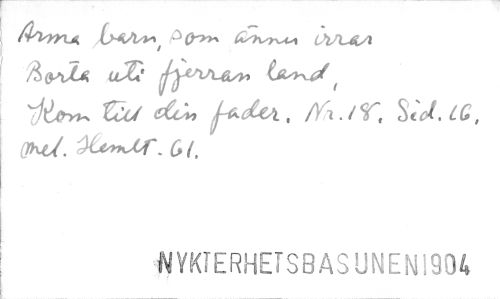 Arma barn, som ännu irrar
Borta uti fjerran land,
Kom till din fader. Nr. 18. Sid. 16.
mel. Hemlt. 61.
NYKTERHETSBASUNEN1904